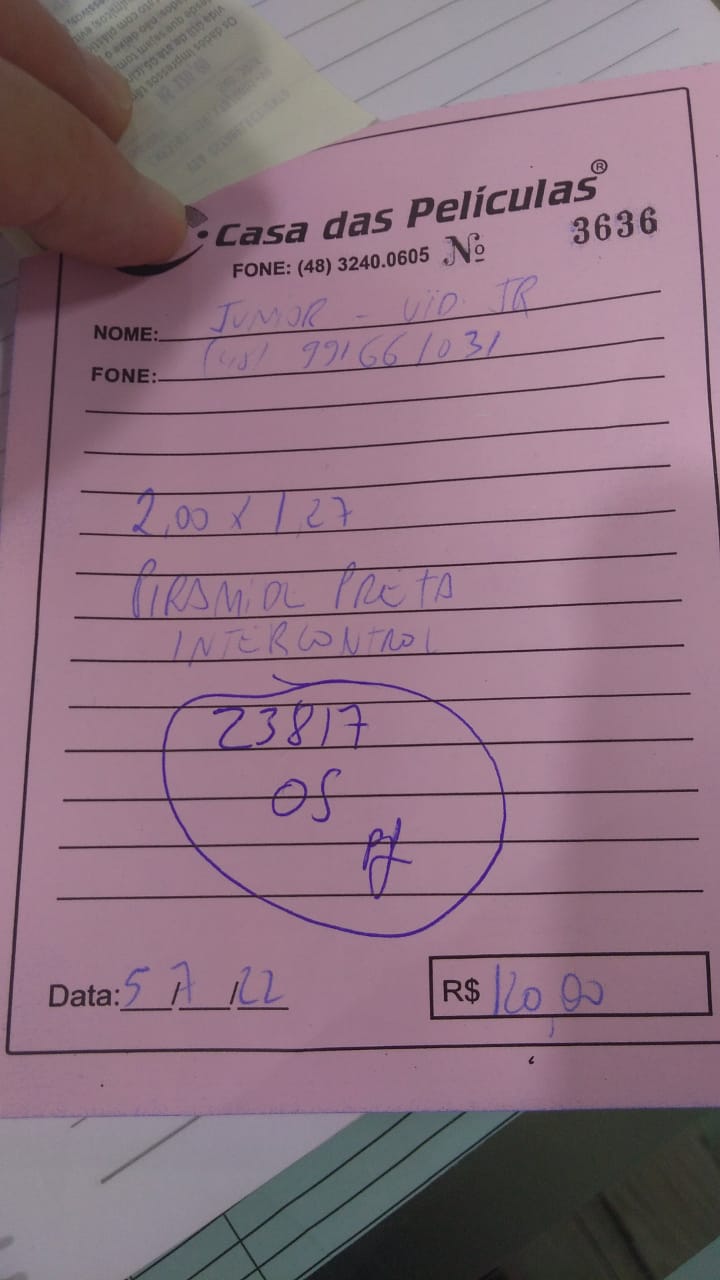 Casa das Películas®
FONE: (48) 3240.0605 Nº 3636
NOME: JUNIOR - VID. JR
FONE: (48) 991661031
2,00 x 1,27
PIRAMIDE PRETA
INTERCONTROL
23817
OS
Data: 5/7/22
R$ 120,00